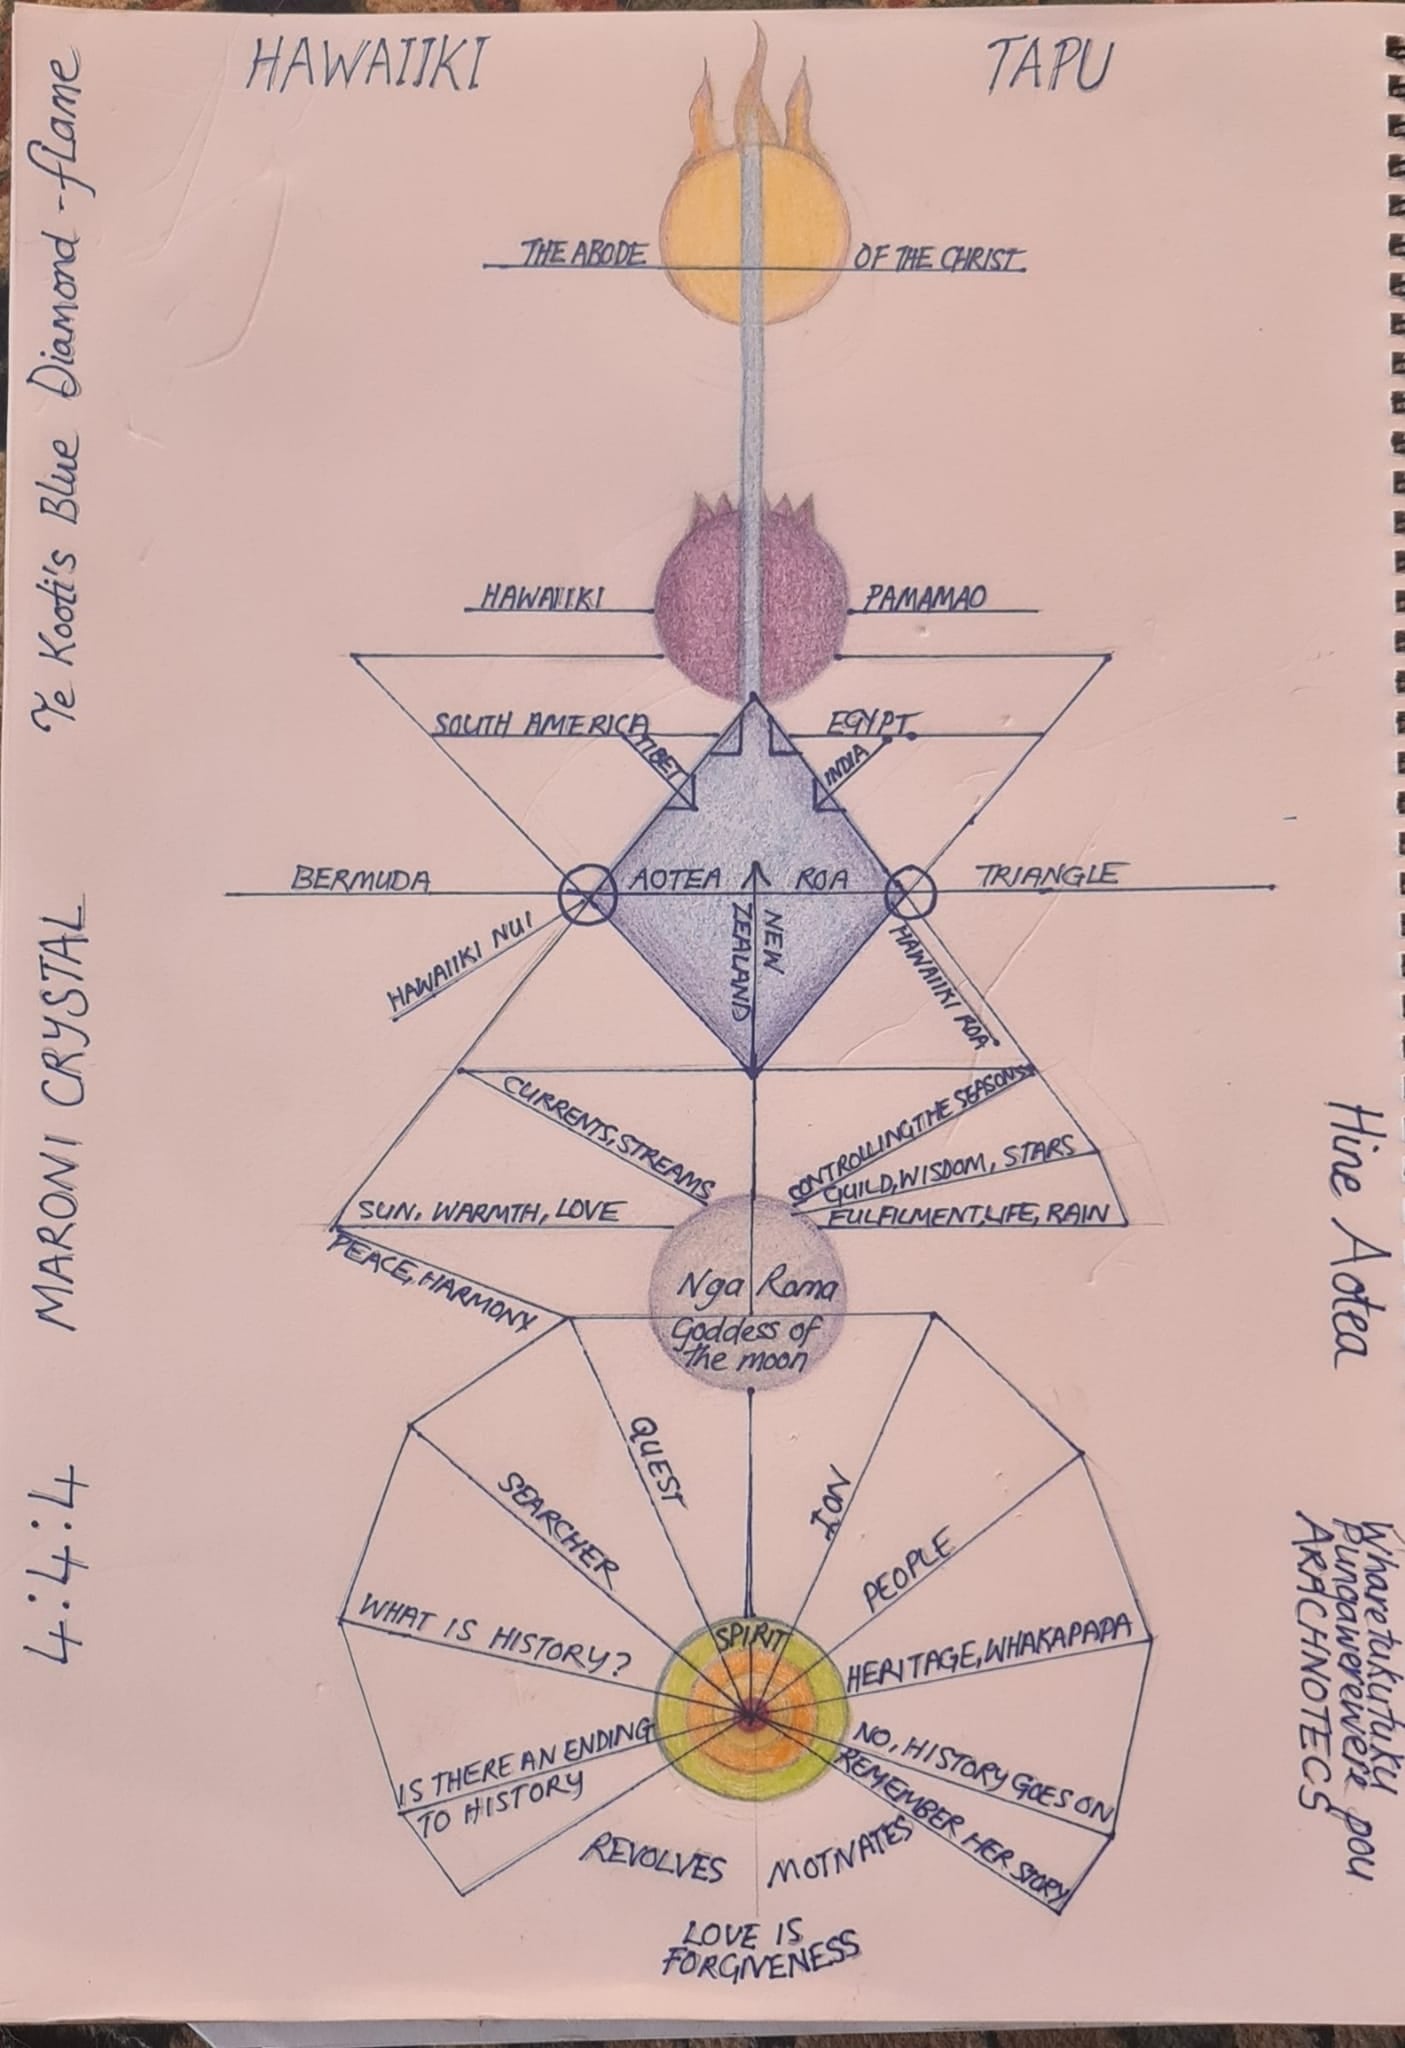 HAWAIIKI TAPU
THE ABODE OF THE CHRIST
HAWAIIKI PAMAMAO
SOUTH AMERICA EGYPT
TIBET INDIA
BERMUDA AOTEA ROA TRIANGLE
NEW
ZEALAND
HAWAIIKI NUI
HAWAIIKI ROA
CURRENTS, STREAMS
CONTROLLING THE SEASONS
GUILD, WISDOM, STARS
SUN, WARMTH, LOVE
FULFILMENT, LIFE, RAIN
PEACE, HARMONY
Nga Rama
Goddess of
the moon
QUEST ION
SEARCHER PEOPLE
WHAT IS HISTORY?
SPIRIT
HERITAGE, WHAKAPAPA
IS THERE AN ENDING
TO HISTORY
NO, HISTORY GOES ON
REMEMBER HER STORY
REVOLVES MOTIVATES
LOVE IS
FORGIVENESS
4:4:4 MARONI CRYSTAL Te Kooti's Blue Diamond-flame
Hine Aotea
Wharetukutuku
Pungawerewere pou
ARACHNOTECS